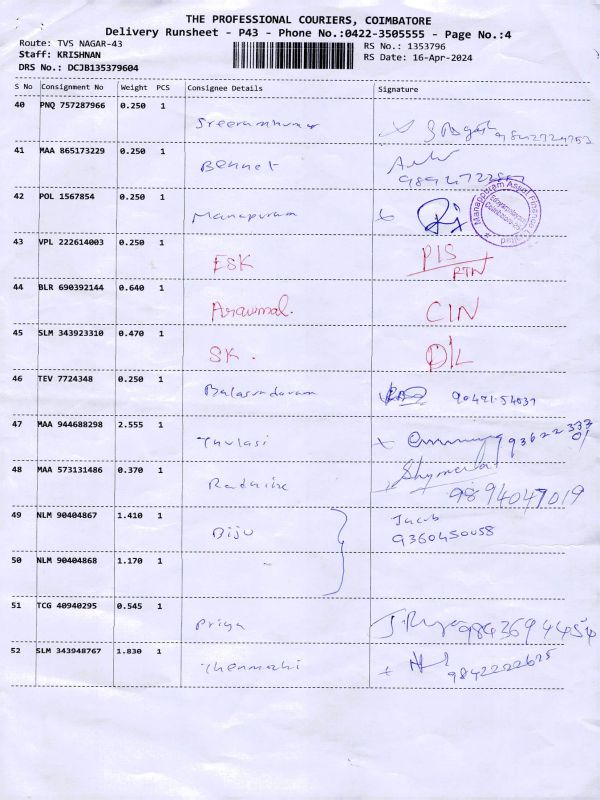 THE PROFESSIONAL COURIERS, COIMBATORE
Delivery Runsheet - P43 - Phone No.:0422-3505555 - Page No.:4
Route: TVS NAGAR-43
Staff: KRISHNAN
DRS No.: DCJB135379604
RS No.: 1353796
RS Date: 16-Apr-2024
S No Consignment No Weight PCS Consignee Details Signature
40 PNQ 757287966 0.250 1
41 MAA 865173229 0.250 1
Bennet
42 POL 1567854 0.250 1
Manapuram
Manappuram Asset Finance
43 VPL 222614003 0.250 1
ESK PIS
RTN
44 BLR 690392144 0.640 1
CIN
45 SLM 343923310 0.470 1
SK. D/L
46 TEV 7724348 0.250 1
Balasundaram
47 MAA 944688298 2.555 1
Thulasi
48 MAA 573131486 0.370 1
9894047019
49 NLM 90404867 1.410 1
Biju Jacob
9360450058
50 NLM 90404868 1.170 1
51 TCG 40940295 0.545 1
Priya
52 SLM 343948767 1.830 1
Thenmozhi 9842222625